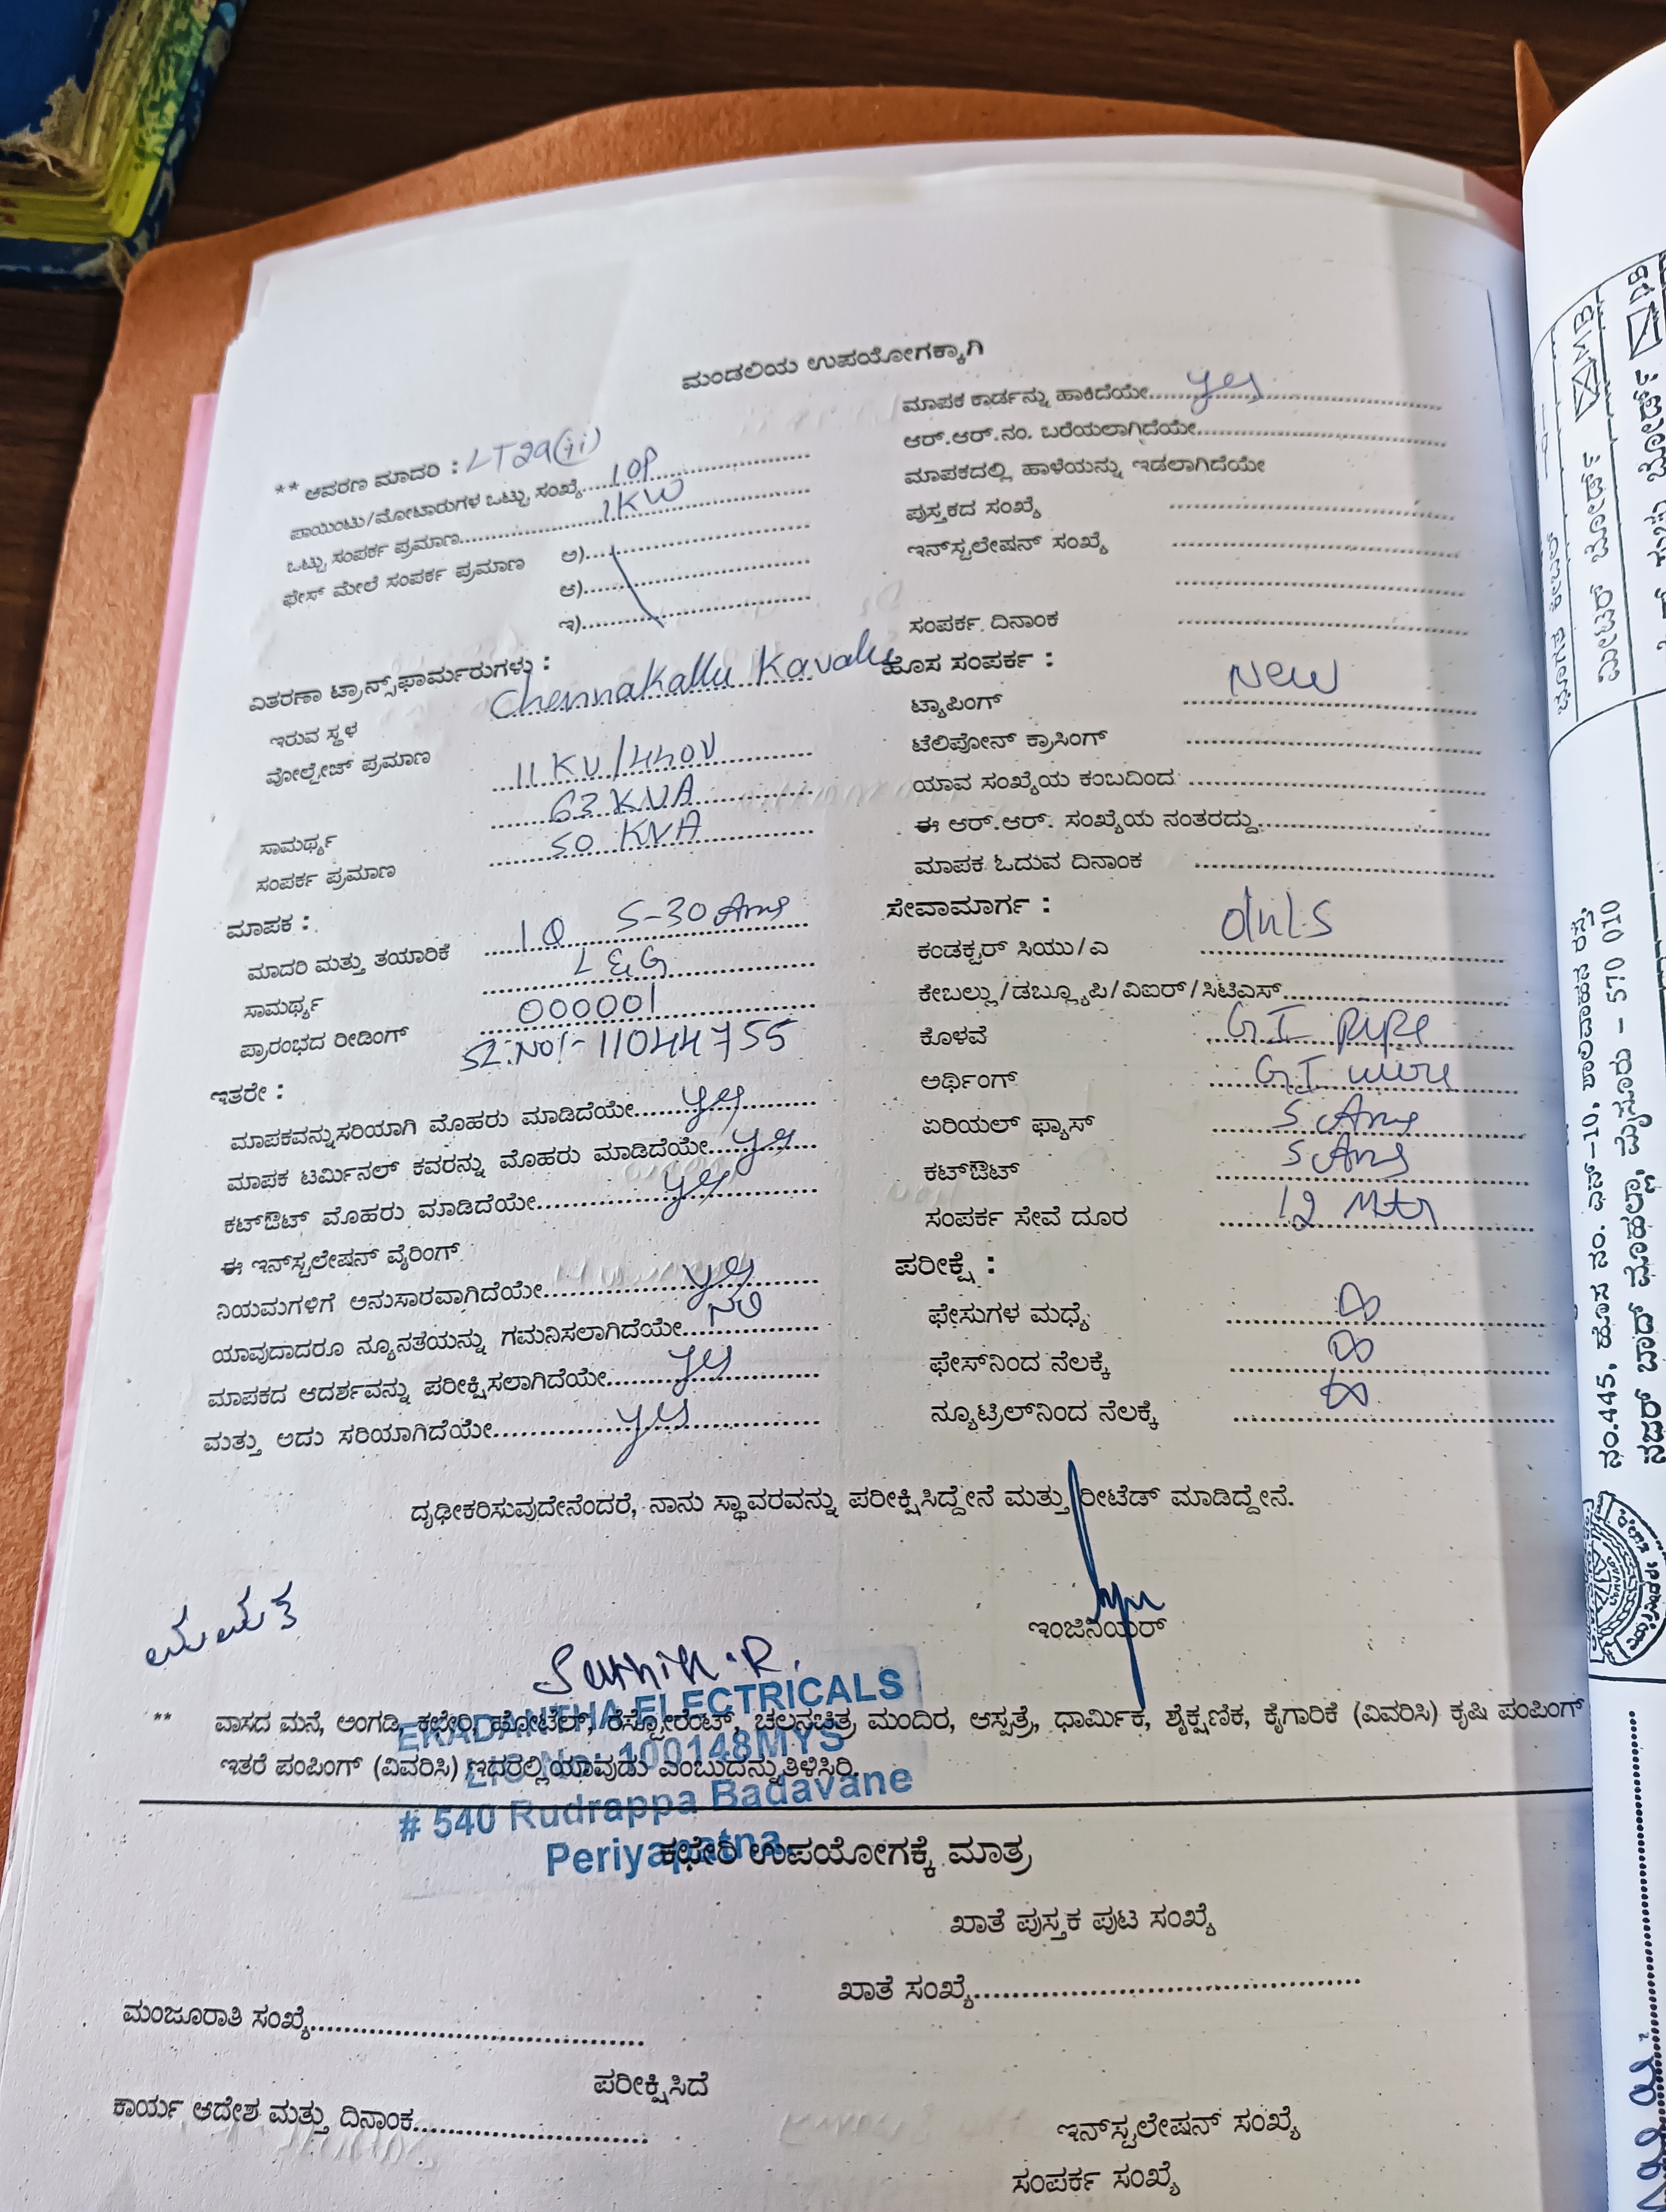 ಮಂಡಲಿಯ ಉಪಯೋಗಕ್ಕಾಗಿ
** ಆವರಣ ಮಾದರಿ : LT2a(ii)
ಪಾಯಿಂಟು/ಮೋಟಾರುಗಳ ಒಟ್ಟು ಸಂಖ್ಯೆ......10P
ಒಟ್ಟು ಸಂಪರ್ಕ ಪ್ರಮಾಣ......1KW
ಫೇಸ್ ಮೇಲೆ ಸಂಪರ್ಕ ಪ್ರಮಾಣ ಅ)......
ಆ)......
ಇ)......
ವಿತರಣಾ ಟ್ರಾನ್ಸ್‌ಫಾರ್ಮರುಗಳು :
ಇರುವ ಸ್ಥಳ Chennakallu Kavalu
ವೋಲ್ಟೇಜ್ ಪ್ರಮಾಣ 11 KV/440V
63 KVA
ಸಾಮರ್ಥ್ಯ 50 KVA
ಸಂಪರ್ಕ ಪ್ರಮಾಣ
ಮಾಪಕ :
ಮಾದರಿ ಮತ್ತು ತಯಾರಿಕೆ 1Q 5-30 Ams
ಸಾಮರ್ಥ್ಯ L&G
ಪ್ರಾರಂಭದ ರೀಡಿಂಗ್ 000001
SL.No:- 11044755
ಇತರೇ :
ಮಾಪಕವನ್ನು ಸರಿಯಾಗಿ ಮೊಹರು ಮಾಡಿದೆಯೇ......yes
ಮಾಪಕ ಟರ್ಮಿನಲ್ ಕವರನ್ನು ಮೊಹರು ಮಾಡಿದೆಯೇ......yes
ಕಟ್‌ಔಟ್ ಮೊಹರು ಮಾಡಿದೆಯೇ......yes
ಈ ಇನ್‌ಸ್ಟಲೇಷನ್ ವೈರಿಂಗ್
ನಿಯಮಗಳಿಗೆ ಅನುಸಾರವಾಗಿದೆಯೇ......yes
ಯಾವುದಾದರೂ ನ್ಯೂನತೆಯನ್ನು ಗಮನಿಸಲಾಗಿದೆಯೇ......No
ಮಾಪಕದ ಆದರ್ಶವನ್ನು ಪರೀಕ್ಷಿಸಲಾಗಿದೆಯೇ......yes
ಮತ್ತು ಅದು ಸರಿಯಾಗಿದೆಯೇ......yes
ಮಾಪಕ ಕಾರ್ಡನ್ನು ಹಾಕಿದೆಯೇ......yes
ಆರ್.ಆರ್.ನಂ. ಬರೆಯಲಾಗಿದೆಯೇ......
ಮಾಪಕದಲ್ಲಿ ಹಾಳೆಯನ್ನು ಇಡಲಾಗಿದೆಯೇ
ಪುಸ್ತಕದ ಸಂಖ್ಯೆ ......
ಇನ್‌ಸ್ಟಲೇಷನ್ ಸಂಖ್ಯೆ ......
ಸಂಪರ್ಕ ದಿನಾಂಕ ......
ಹೊಸ ಸಂಪರ್ಕ :
ಟ್ಯಾಪಿಂಗ್ New
ಟೆಲಿಪೋನ್ ಕ್ರಾಸಿಂಗ್ ......
ಯಾವ ಸಂಖ್ಯೆಯ ಕಂಬದಿಂದ ......
ಈ ಆರ್.ಆರ್. ಸಂಖ್ಯೆಯ ನಂತರದ್ದು......
ಮಾಪಕ ಓದುವ ದಿನಾಂಕ ......
ಸೇವಾಮಾರ್ಗ :
ಕಂಡಕ್ಟರ್ ಸಿಯು/ಎ
ಕೇಬಲ್ಲು/ಡಬ್ಲ್ಯೂಪಿ/ವಿಐರ್/ಸಿಟಿಎಸ್......
ಕೊಳವೆ GI pipe
ಅರ್ಥಿಂಗ್ GI wire
ಏರಿಯಲ್ ಫ್ಯಾಸ್ 5 Ams
ಕಟ್‌ಔಟ್ 5 Ams
ಸಂಪರ್ಕ ಸೇವೆ ದೂರ 12 Mtr
ಪರೀಕ್ಷೆ :
ಫೇಸುಗಳ ಮಧ್ಯೆ ∞
ಫೇಸ್‌ನಿಂದ ನೆಲಕ್ಕೆ ∞
ನ್ಯೂಟ್ರಿಲ್‌ನಿಂದ ನೆಲಕ್ಕೆ ∞
ದೃಢೀಕರಿಸುವುದೇನೆಂದರೆ, ನಾನು ಸ್ಥಾವರವನ್ನು ಪರೀಕ್ಷಿಸಿದ್ದೇನೆ ಮತ್ತು ರೀಟೆಡ್ ಮಾಡಿದ್ದೇನೆ.
ಮಮತ
ಇಂಜಿನಿಯರ್
EKADANTHA ELECTRICALS
** ವಾಸದ ಮನೆ, ಅಂಗಡಿ, ಕಛೇರಿ, ಹೋಟೆಲ್, ರೆಸ್ಟೋರೆಂಟ್, ಚಲನಚಿತ್ರ ಮಂದಿರ, ಆಸ್ಪತ್ರೆ, ಧಾರ್ಮಿಕ, ಶೈಕ್ಷಣಿಕ, ಕೈಗಾರಿಕೆ (ವಿವರಿಸಿ) ಕೃಷಿ ಪಂಪಿಂಗ್
100148MYS
ಇತರೆ ಪಂಪಿಂಗ್ (ವಿವರಿಸಿ) ಇದರಲ್ಲಿ ಯಾವುದು ಎಂಬುದನ್ನು ತಿಳಿಸಿರಿ.
# 540 Rudrappa Badavane
Periyapatna
ಕಛೇರಿ ಉಪಯೋಗಕ್ಕೆ ಮಾತ್ರ
ಖಾತೆ ಪುಸ್ತಕ ಪುಟ ಸಂಖ್ಯೆ
ಖಾತೆ ಸಂಖ್ಯೆ......
ಮಂಜೂರಾತಿ ಸಂಖ್ಯೆ......
ಪರೀಕ್ಷಿಸಿದೆ
ಕಾರ್ಯ ಆದೇಶ ಮತ್ತು ದಿನಾಂಕ......
ಇನ್‌ಸ್ಟಲೇಷನ್ ಸಂಖ್ಯೆ
ಸಂಪರ್ಕ ಸಂಖ್ಯೆ
ಮೀಟರ್ ಬೋರ್ಡ್
ನಂ.445, ಹೊಸ ನಂ. ಎನ್-10, ಶಾಲಿವಾಹನ ರಸ್ತೆ,
ನಜರ್ ಬಾದ್ ಮೊಹಲ್ಲಾ, ಮೈಸೂರು - 570 010